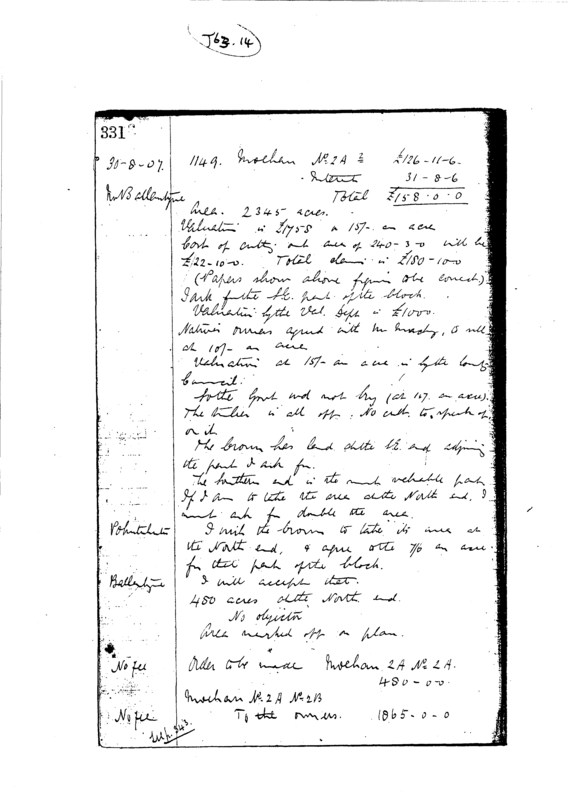 J63.14
331
30-8-07. 1149. Mochau No. 2A 3 £126-11-6.
Interest 31-8-6
Mr N Ballantyne Total £158.0.0
Area. 2345 acres.
Valuation is £1758 or 15/- an acre
Cost of cutting out area of 240-3-0 will be
£22-10-0. Total claim is £180-10-0
(Papers show above figures to be correct)
I ask for the part of the block.
Valuation by the Val. Dept is £1000.
Natives owners agreed with to sell
at 10/- an acre
Valuation at 15/- an acre is by the County
Council.
for the Govt wd not buy (at 10/. an acre).
The timber is all off. No to speak of
on it
The Crown has land at the and adjoining
the part I ask for.
The Southern end is the much valuable part
If I am to take the area at the North end, I
must ask for double the area.
I wish the Crown to take its area at
the North end, & agree to the 7/6 an acre
for that part of the block.
Ballantyne I will accept that.
480 acres at the North end.
No objection
Area marked off on plan.
No fee Order to be made Mochau 2A No 2A.
480-0-0.
Mochau No. 2A No 2B
No fee To the owners. 1865-0-0
343.